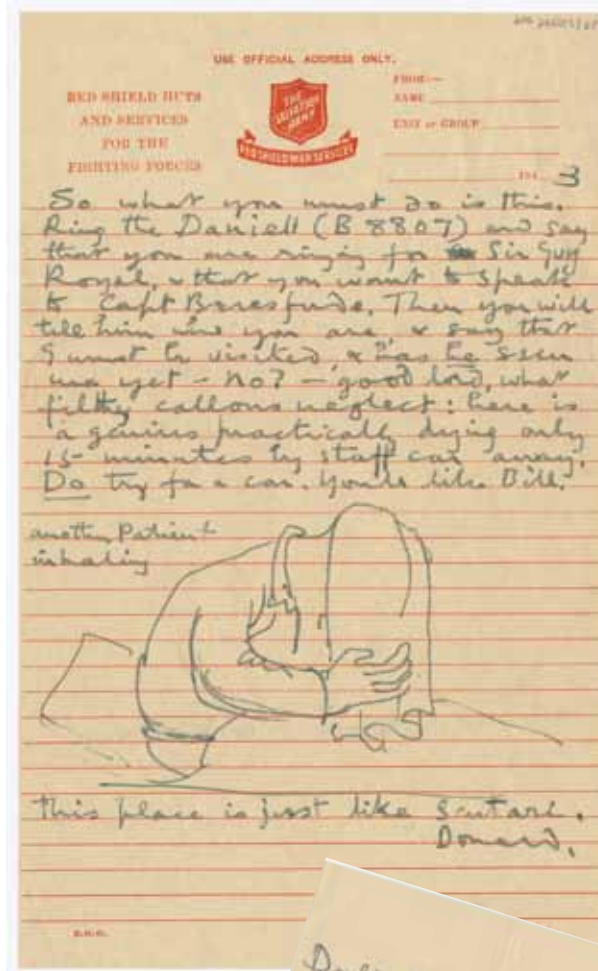 USE OFFICIAL ADDRESS ONLY.
RED SHIELD HUTS
AND SERVICES
FOR THE
FIGHTING FORCES
THE
SALVATION
ARMY
RED SHIELD WAR SERVICES
FROM:—
NAME
UNIT or GROUP
194 3
So what you must do is this.
Ring the Daniell (B 8807) and say
that you are ringing for Sir Guy
Royal, & that you want to speak
to Capt Beresforde. Then you will
tell him who you are, & say that
I must be visited, & has he seen
me yet – no? – good lord, what
filthy callous neglect: here is
a genius practically dying only
15 minutes by staff car away.
Do try for a car. You'll like Bill.
another Patient
inhaling
This place is just like Scutari.
Donard.